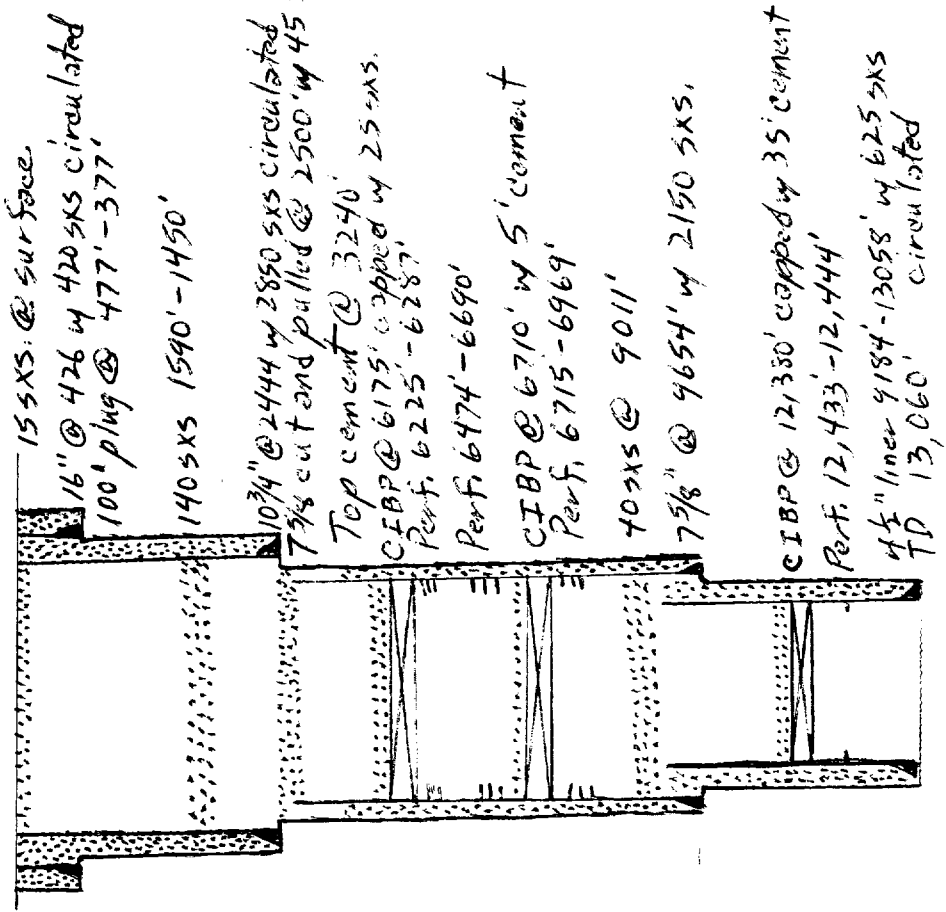 15 sxs. @ surface
16" @ 426 w/ 420 sxs circulated
100' plug @ 477'-377'
140 sxs 1590'-1450'
10 3/4" @ 2444 w/ 2850 sxs circulated
7 5/8 cut and pulled @ 2500' w/ 45
Top cement @ 3240'
CIBP @ 6175' capped w/ 25 sxs.
Perf. 6225'-6287'
Perf. 6474'-6690'
CIBP @ 6710' w/ 5' cement
Perf. 6715-6969'
40 sxs @ 9011'
7 5/8" @ 9654' w/ 2150 sxs.
CIBP @ 12,380' capped w/ 35' cement
Perf. 12,433'-12,444'
4 1/2" liner 9184'-13058' w/ 625 sxs
TD 13,060' circulated